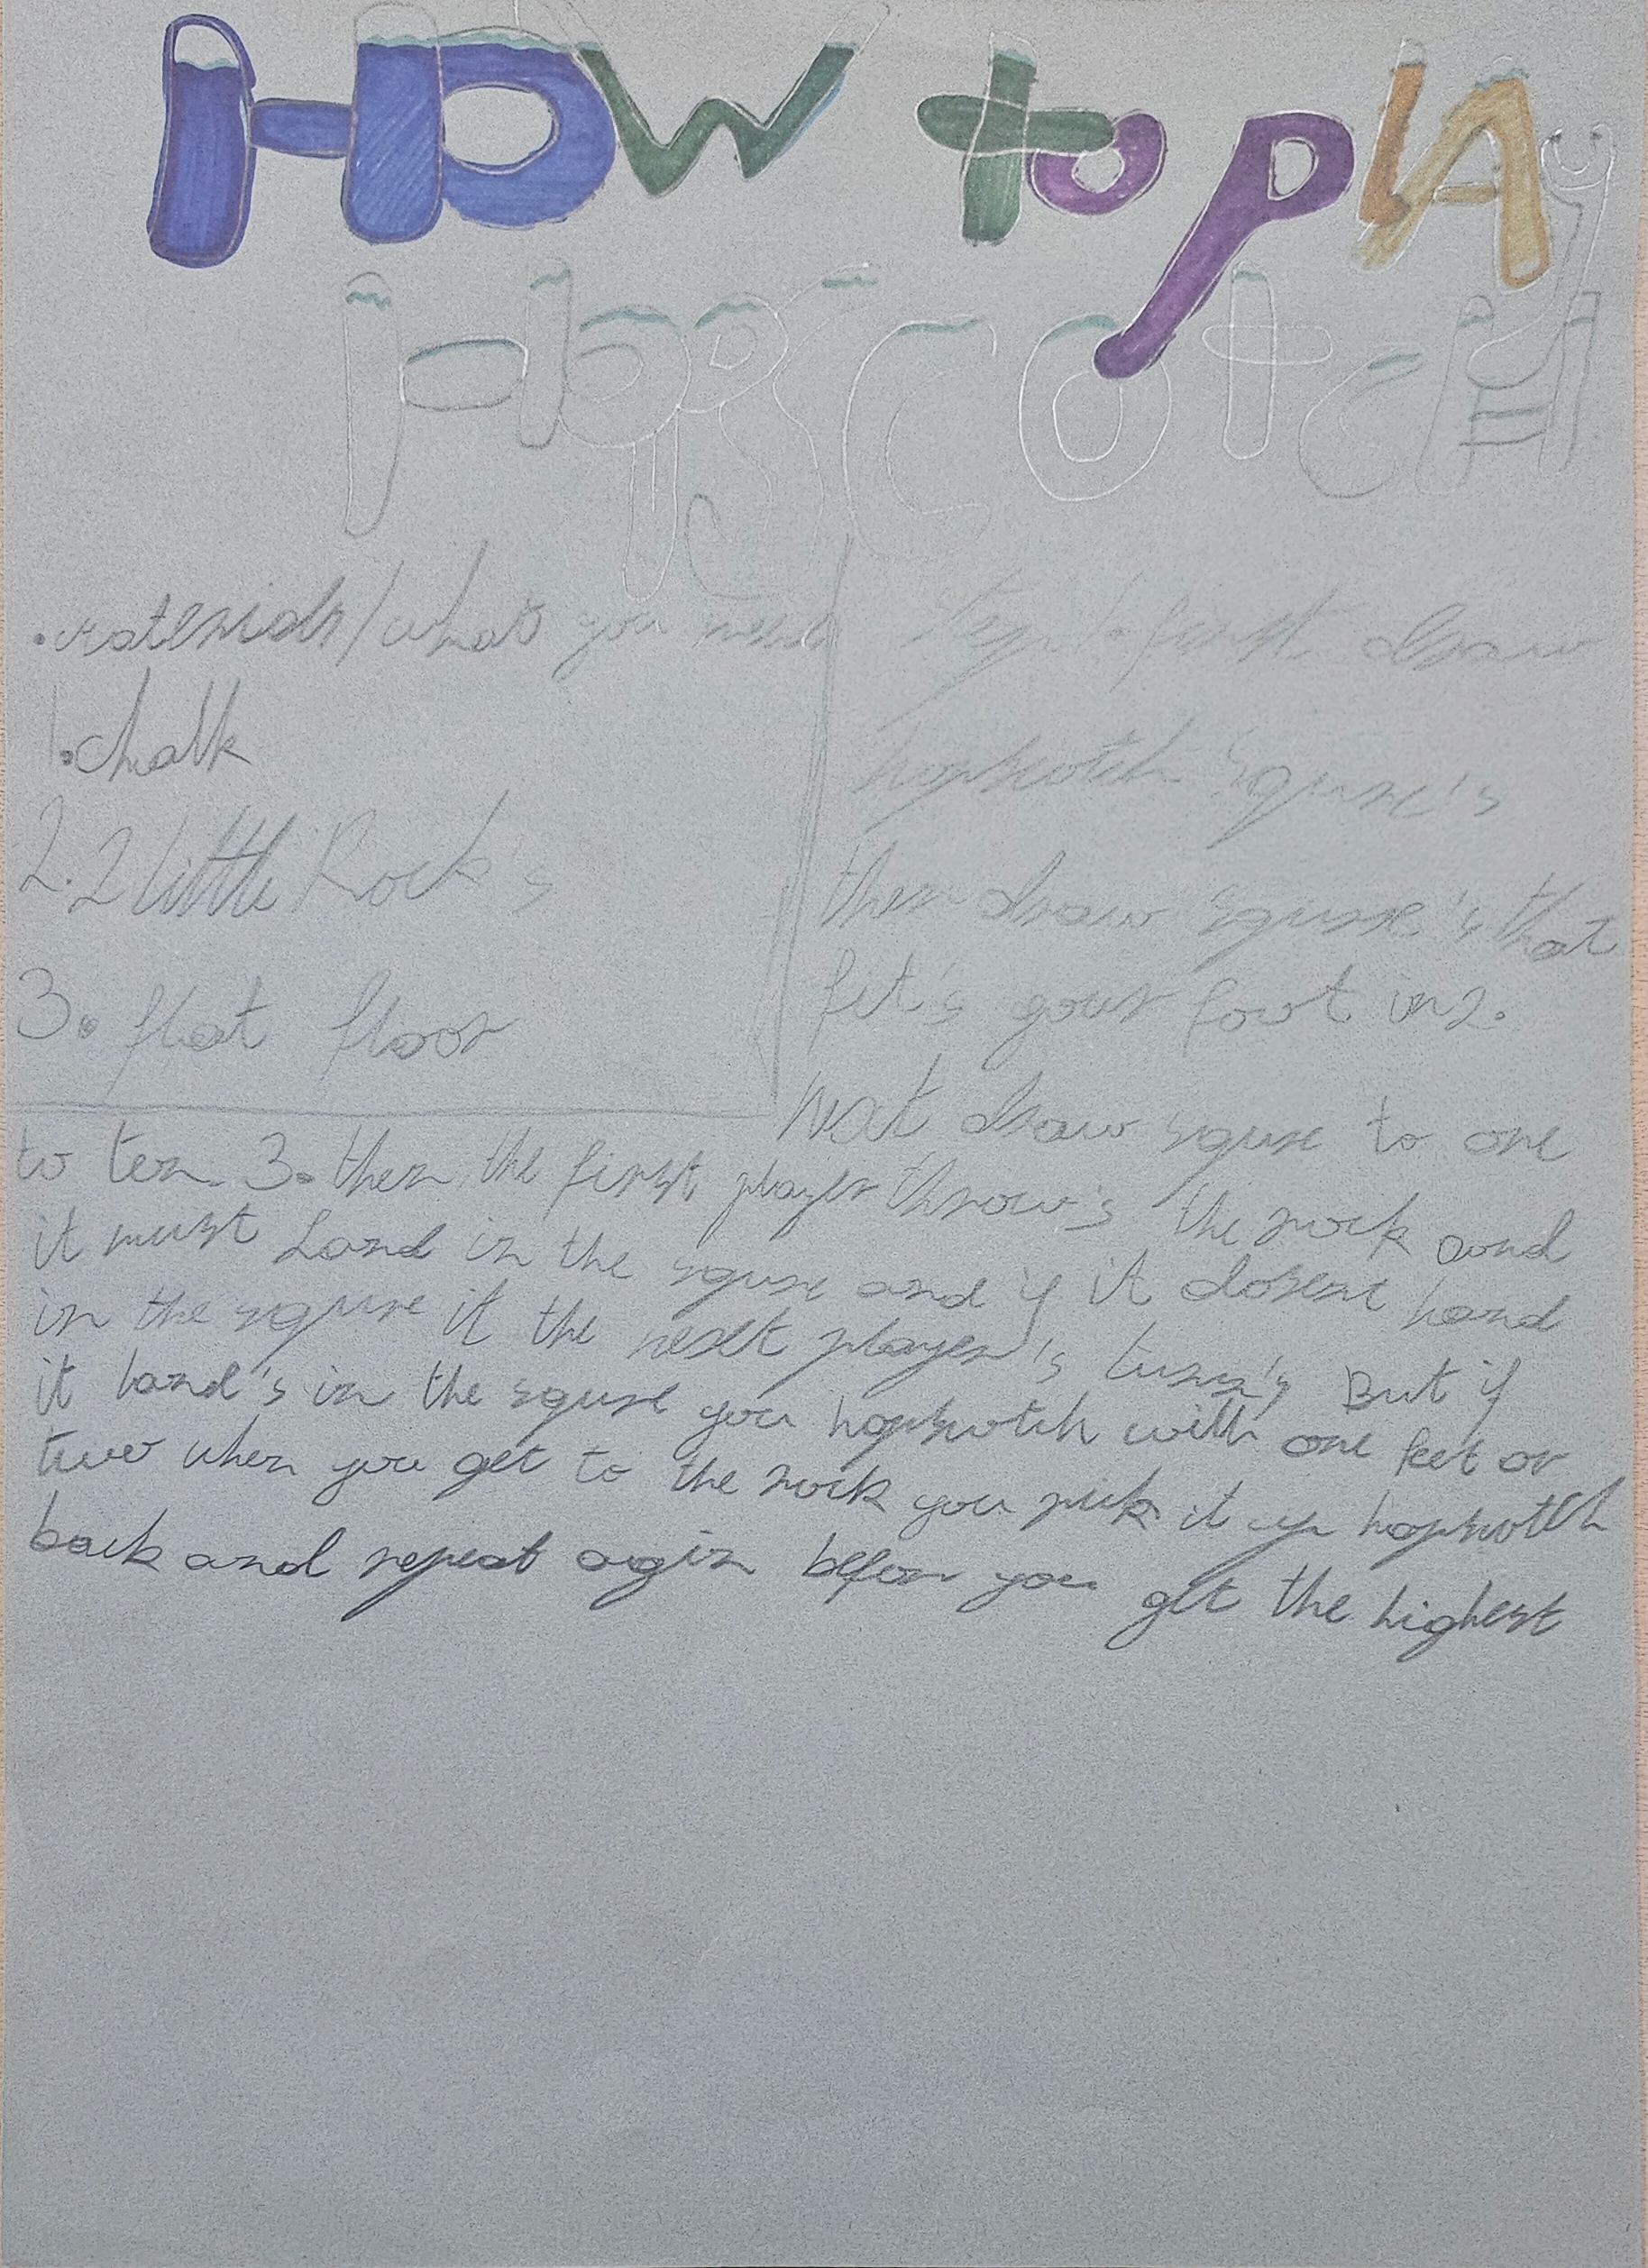 How to plAy
HopscotcH
.materials/what you need
1.chalk
2.2 little Rock's
3. flat floor
step 1. first draw
hopscotch squrse's
then draw squrse's that
fit's your foot in 2.
next draw squrse to one
to ten. 3. then the first player throw's the rock and
it must Land in the squrse and if it dosent land
in the squrse it the next player's turn's But if
it land's in the squrse you hopscotch with one feet or
two when you get to the rock you pick it up hopscotch
back and repeat agin befor you get the highest